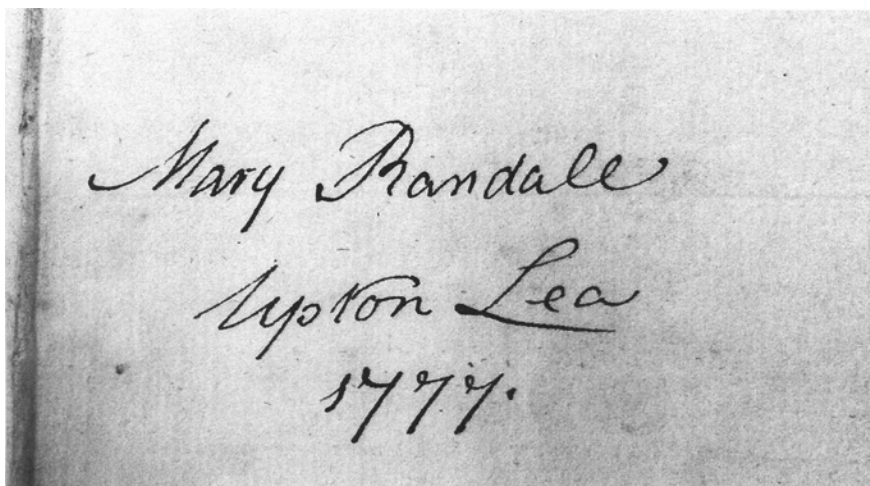 Mary Randall
Upton Lea
1777.